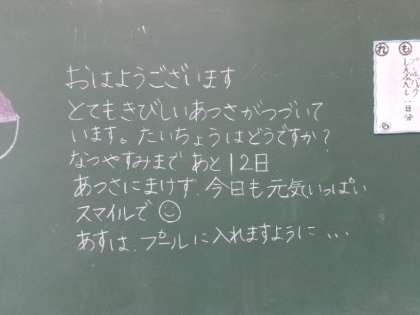 おはようございます
とてもきびしいあつさがつづいて
います。たいちょうはどうですか？
なつやすみまで あと12日
あつさにまけず、今日も元気いっぱい
スマイルで
あすは、プールに入れますように...
も
れ